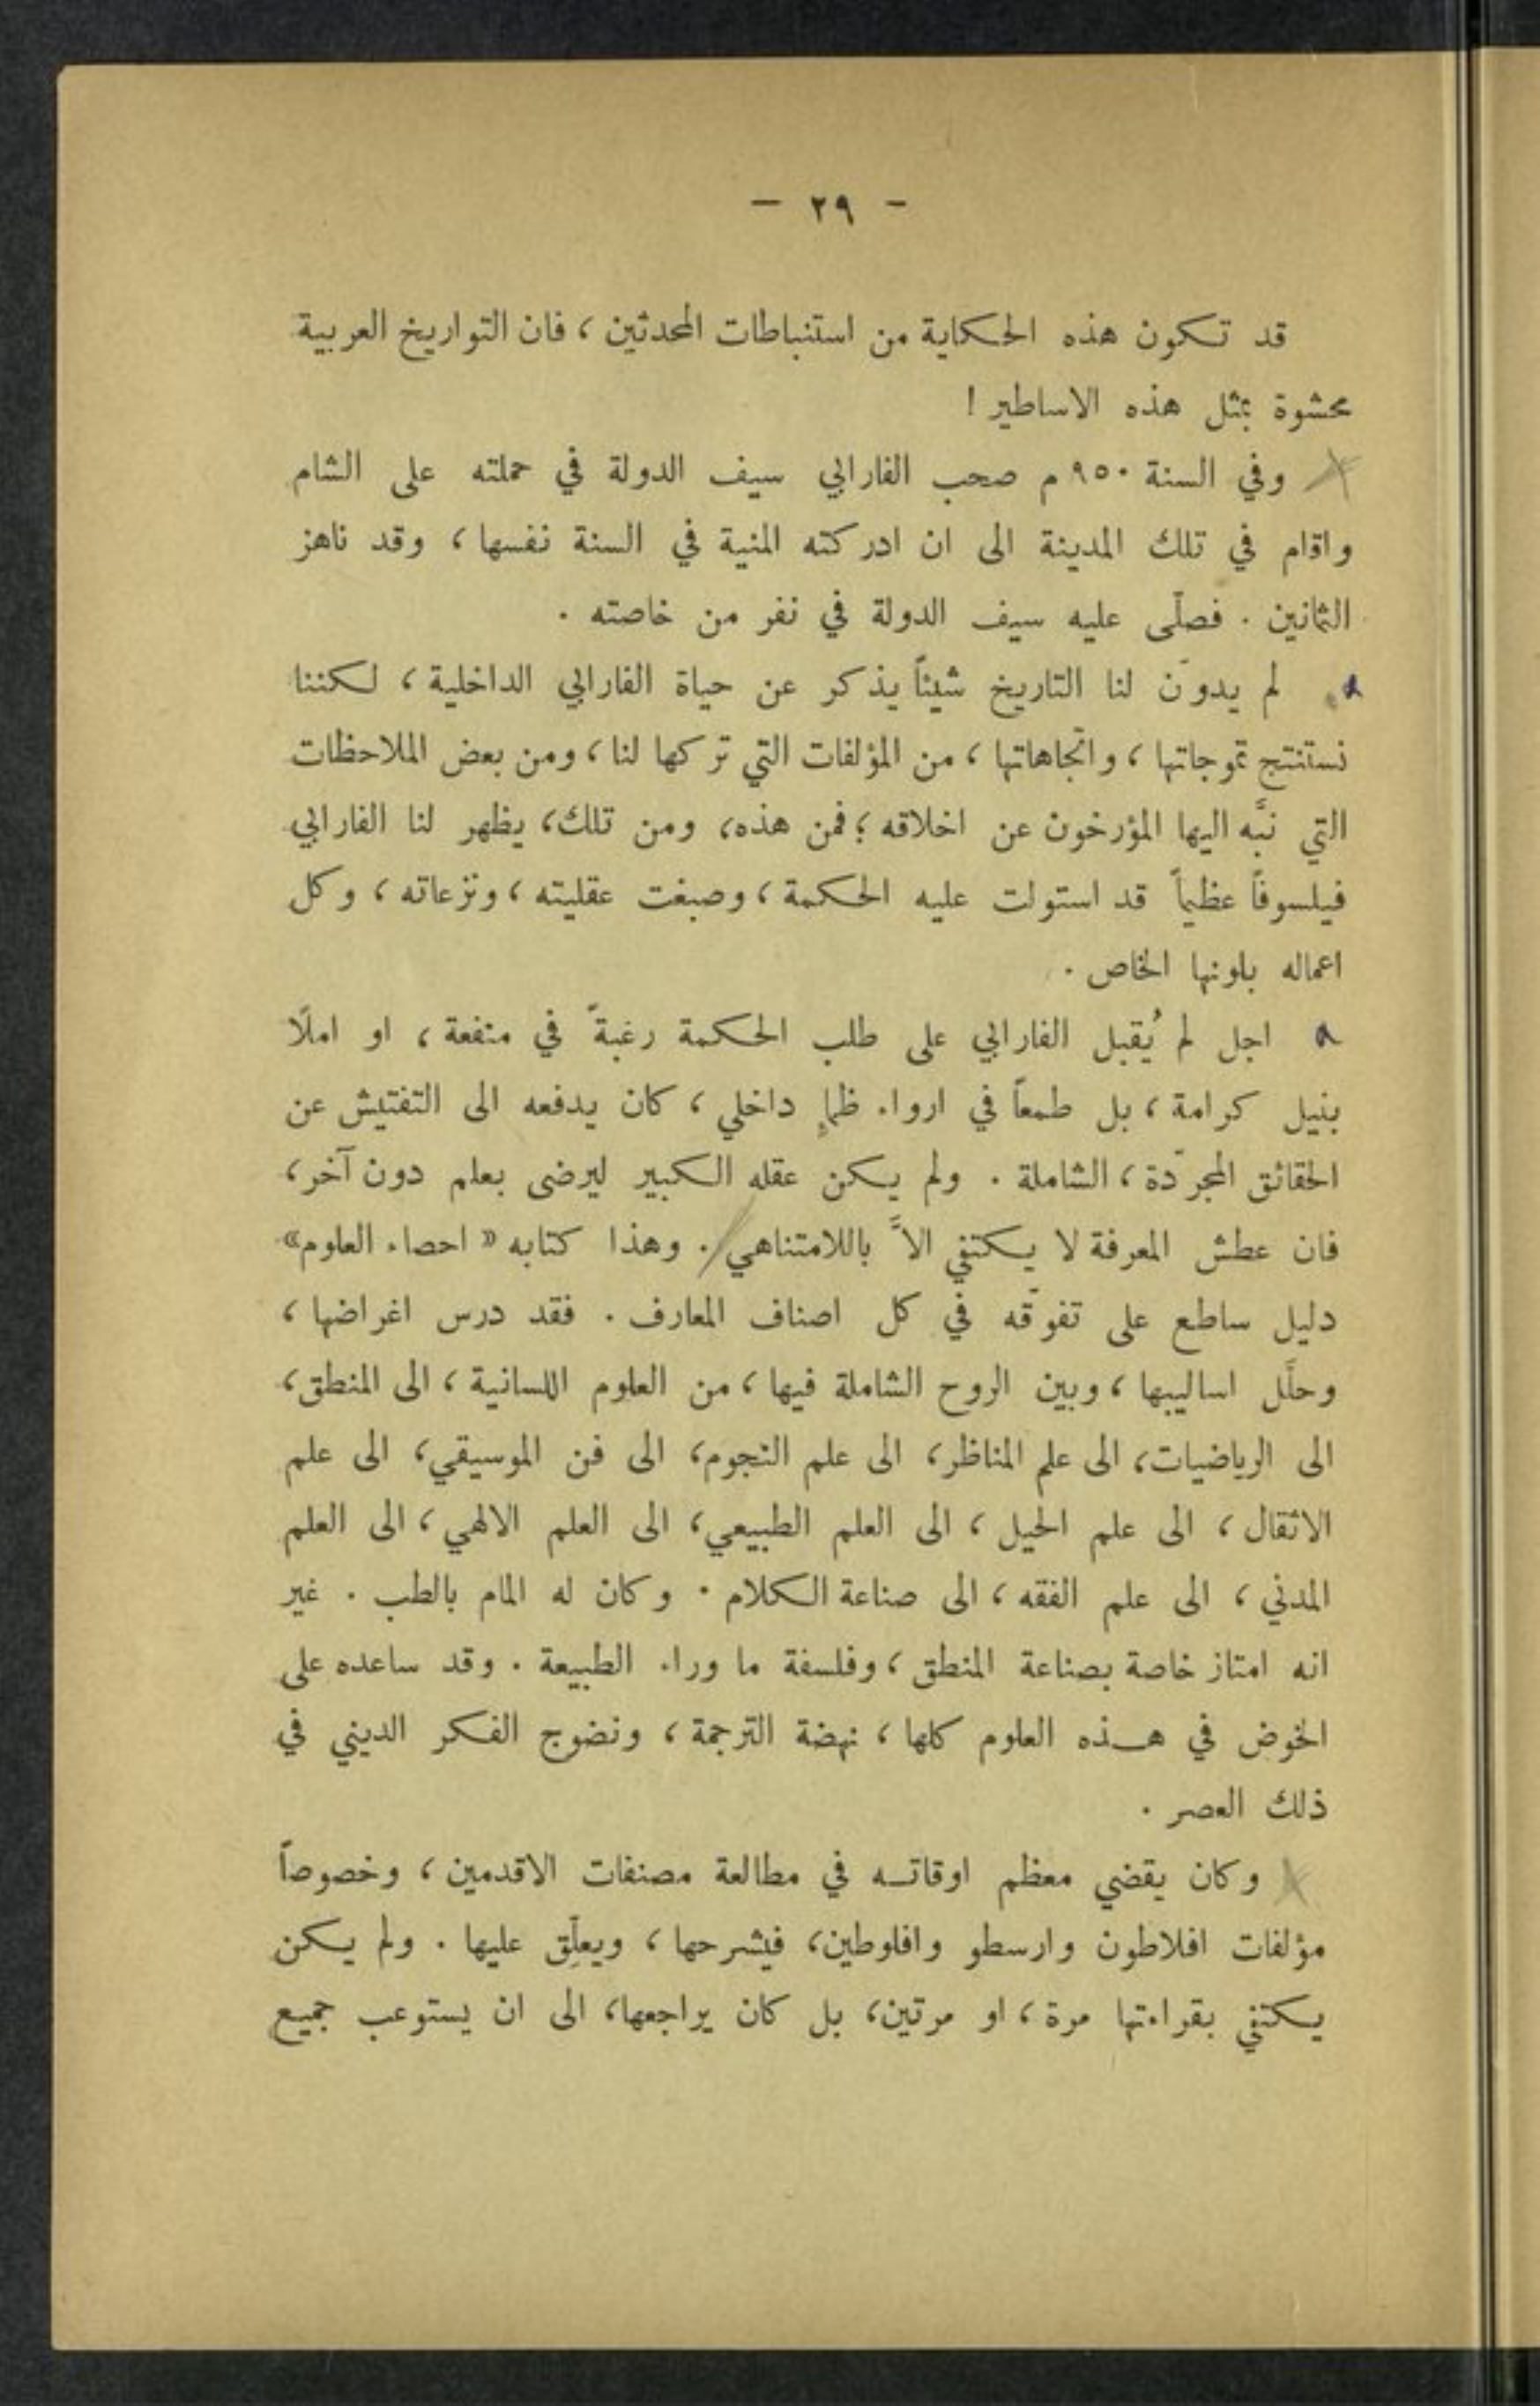 - ٢٩ -
قد تكون هذه الحكاية من استنباطات المحدثين ، فان التواريخ العربية
محشوة بمثل هذه الاساطير !
وفي السنة ٩٥٠ م صحب الفارابي سيف الدولة في حملته على الشام
واقام في تلك المدينة الى ان ادركته المنية في السنة نفسها ، وقد ناهز
الثمانين . فصلّى عليه سيف الدولة في نفر من خاصته .
لم يدوّن لنا التاريخ شيئاً يذكر عن حياة الفارابي الداخلية ، لكننا
نستنتج تموجاتها ، واتجاهاتها ، من المؤلفات التي تركها لنا ، ومن بعض الملاحظات
التي نبَّه اليها المؤرخون عن اخلاقه ؛ فمن هذه ، ومن تلك ، يظهر لنا الفارابي
فيلسوفاً عظيماً قد استولت عليه الحكمة ، وصبغت عقليته ، ونزعاته ، وكل
اعماله بلونها الخاص .
اجل لم يُقبل الفارابي على طلب الحكمة رغبةً في منفعة ، او املًا
بنيل كرامة ، بل طمعاً في ارواء ظمإٍ داخلي ، كان يدفعه الى التفتيش عن
الحقائق المجرّدة ، الشاملة . ولم يكن عقله الكبير ليرضى بعلم دون آخر ،
فان عطش المعرفة لا يكتفي الاَّ باللامتناهي . وهذا كتابه « احصاء العلوم »
دليل ساطع على تفوّقه في كل اصناف المعارف . فقد درس اغراضها ،
وحلَّل اساليبها ، وبين الروح الشاملة فيها ، من العلوم اللسانية ، الى المنطق ،
الى الرياضيات ، الى علم المناظر ، الى علم النجوم ، الى فن الموسيقي ، الى علم
الاثقال ، الى علم الحيل ، الى العلم الطبيعي ، الى العلم الالهي ، الى العلم
المدني ، الى علم الفقه ، الى صناعة الكلام . وكان له المام بالطب . غير
انه امتاز خاصة بصناعة المنطق ، وفلسفة ما وراء الطبيعة . وقد ساعده على
الخوض في هذه العلوم كلها ، نهضة الترجمة ، ونضوج الفكر الديني في
ذلك العصر .
وكان يقضي معظم اوقاته في مطالعة مصنفات الاقدمين ، وخصوصاً
مؤلفات افلاطون وارسطو وافلوطين ، فيشرحها ، ويعلِّق عليها . ولم يكن
يكتفي بقراءتها مرة ، او مرتين ، بل كان يراجعها ، الى ان يستوعب جميع